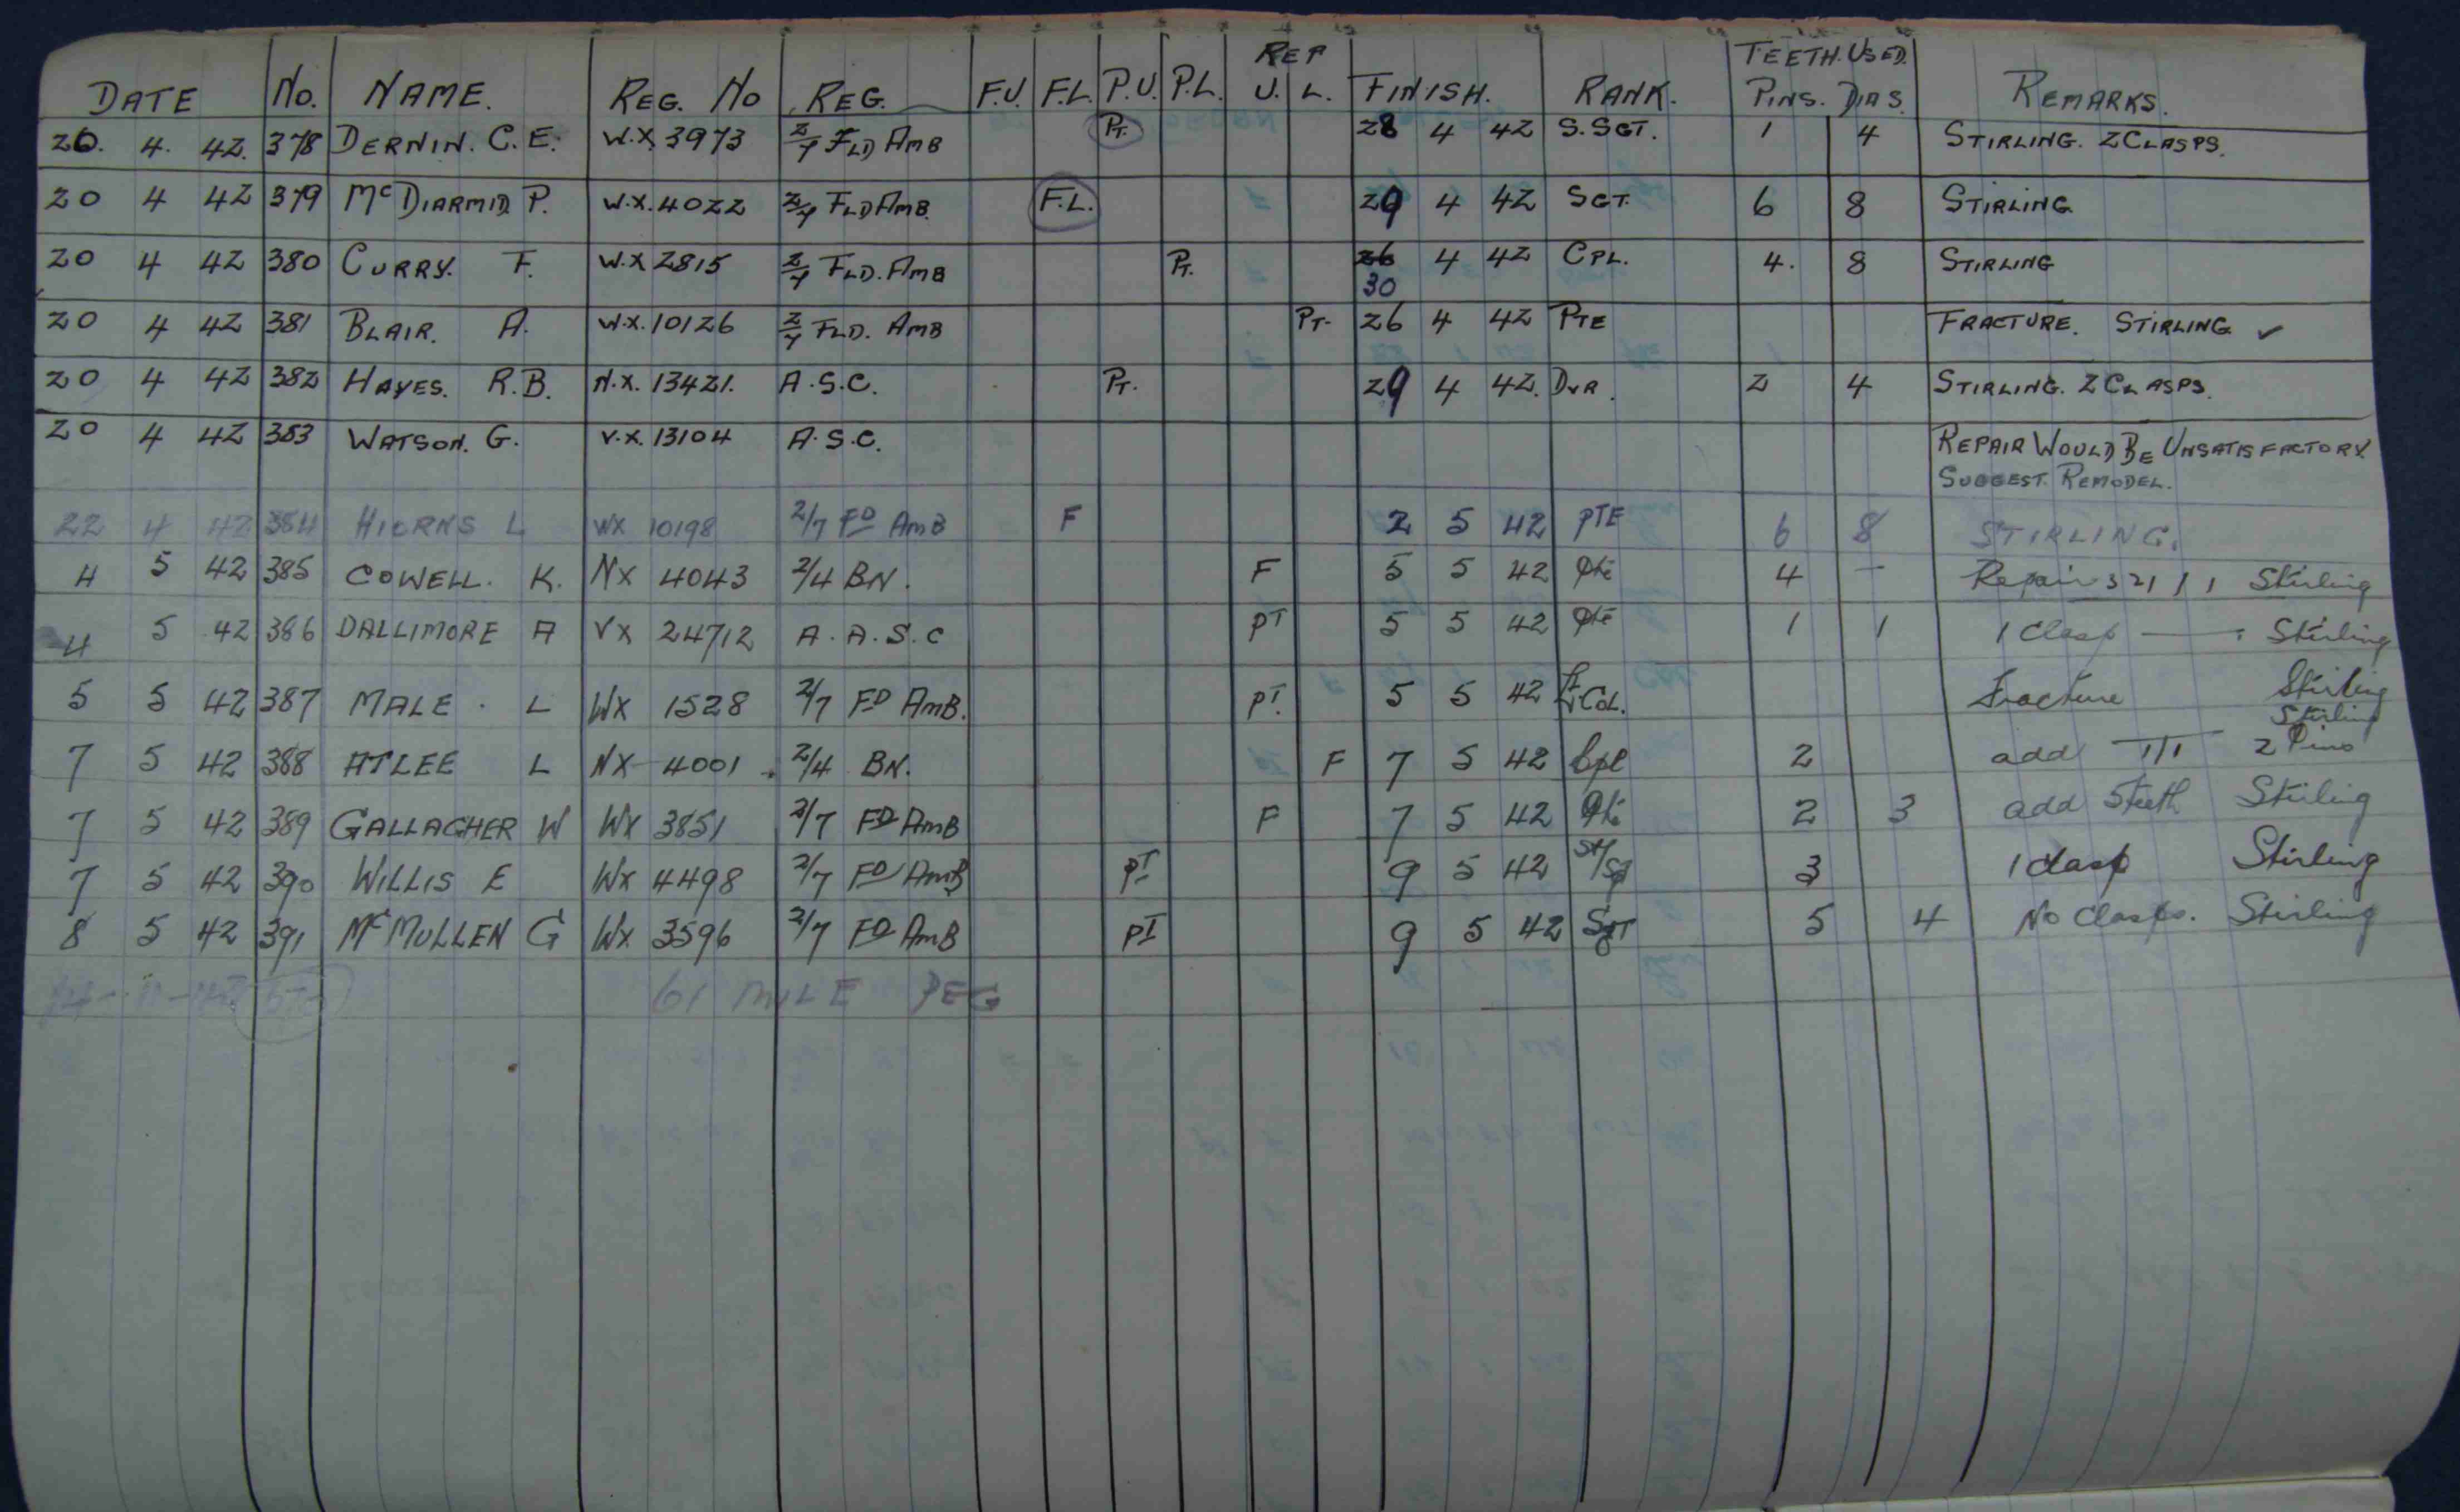 DATE No. NAME. REG. No REG. F.U. F.L. P.U. P.L. REP U. L. FINISH. RANK. TEETH. USED. PINS. DIAS. REMARKS.
20. 4. 42. 378 DERNIN. C.E. W.X. 3973 2/7 FLD AMB PT. 28 4 42 S.SGT. 1 4 STIRLING. 2 CLASPS.
20 4 42 379 McDIARMID P. W.X. 4022 2/7 FLD AMB. F.L. 29 4 42 SGT. 6 8 STIRLING
20 4 42 380 CURRY. F. W.X 2815 2/7 FLD. AMB PT. 26 4 42 CPL. 4. 8 STIRLING
30
20 4 42 381 BLAIR. A. W.X. 10126 2/7 FLD. AMB PT. 26 4 42 PTE FRACTURE. STIRLING ✓
20 4 42 382 HAYES. R.B. N.X. 13421. A.S.C. PT. 29 4 42. DVR. 2 4 STIRLING. 2 CLASPS.
20 4 42 383 WATSON. G. V.X. 13104 A.S.C. REPAIR WOULD BE UNSATISFACTORY.
SUGGEST. REMODEL.
22 4 42 384 HIORNS L WX 10198 2/7 FD AMB F 2 5 42 PTE 6 8 STIRLING.
4 5 42 385 COWELL. K. NX 4043 2/4 BN. F 5 5 42 Pte 4 – Repair 321/1 Stirling
4 5 42 386 DALLIMORE A VX 24712 A.A.S.C PT 5 5 42 Pte 1 1 1 Clasp — Stirling
5 5 42 387 MALE. L WX 1528 2/7 FD AMB. PT. 5 5 42 Lt Col. Fracture Stirling
Stirling
7 5 42 388 ATLEE L NX 4001. 2/4 BN. F 7 5 42 Cpl 2 add 1/1 2 Pins
7 5 42 389 GALLAGHER W WX 3851 2/7 FD AMB F 7 5 42 Pte 2 3 add 5 teeth Stirling
7 5 42 390 WILLIS E WX 4498 2/7 FD AMB PT 9 5 42 St/Sg 3 1 clasp Stirling
8 5 42 391 McMULLEN G WX 3596 2/7 FD AMB PT 9 5 42 SgT 5 4 No Clasps. Stirling
61 MILE PEG